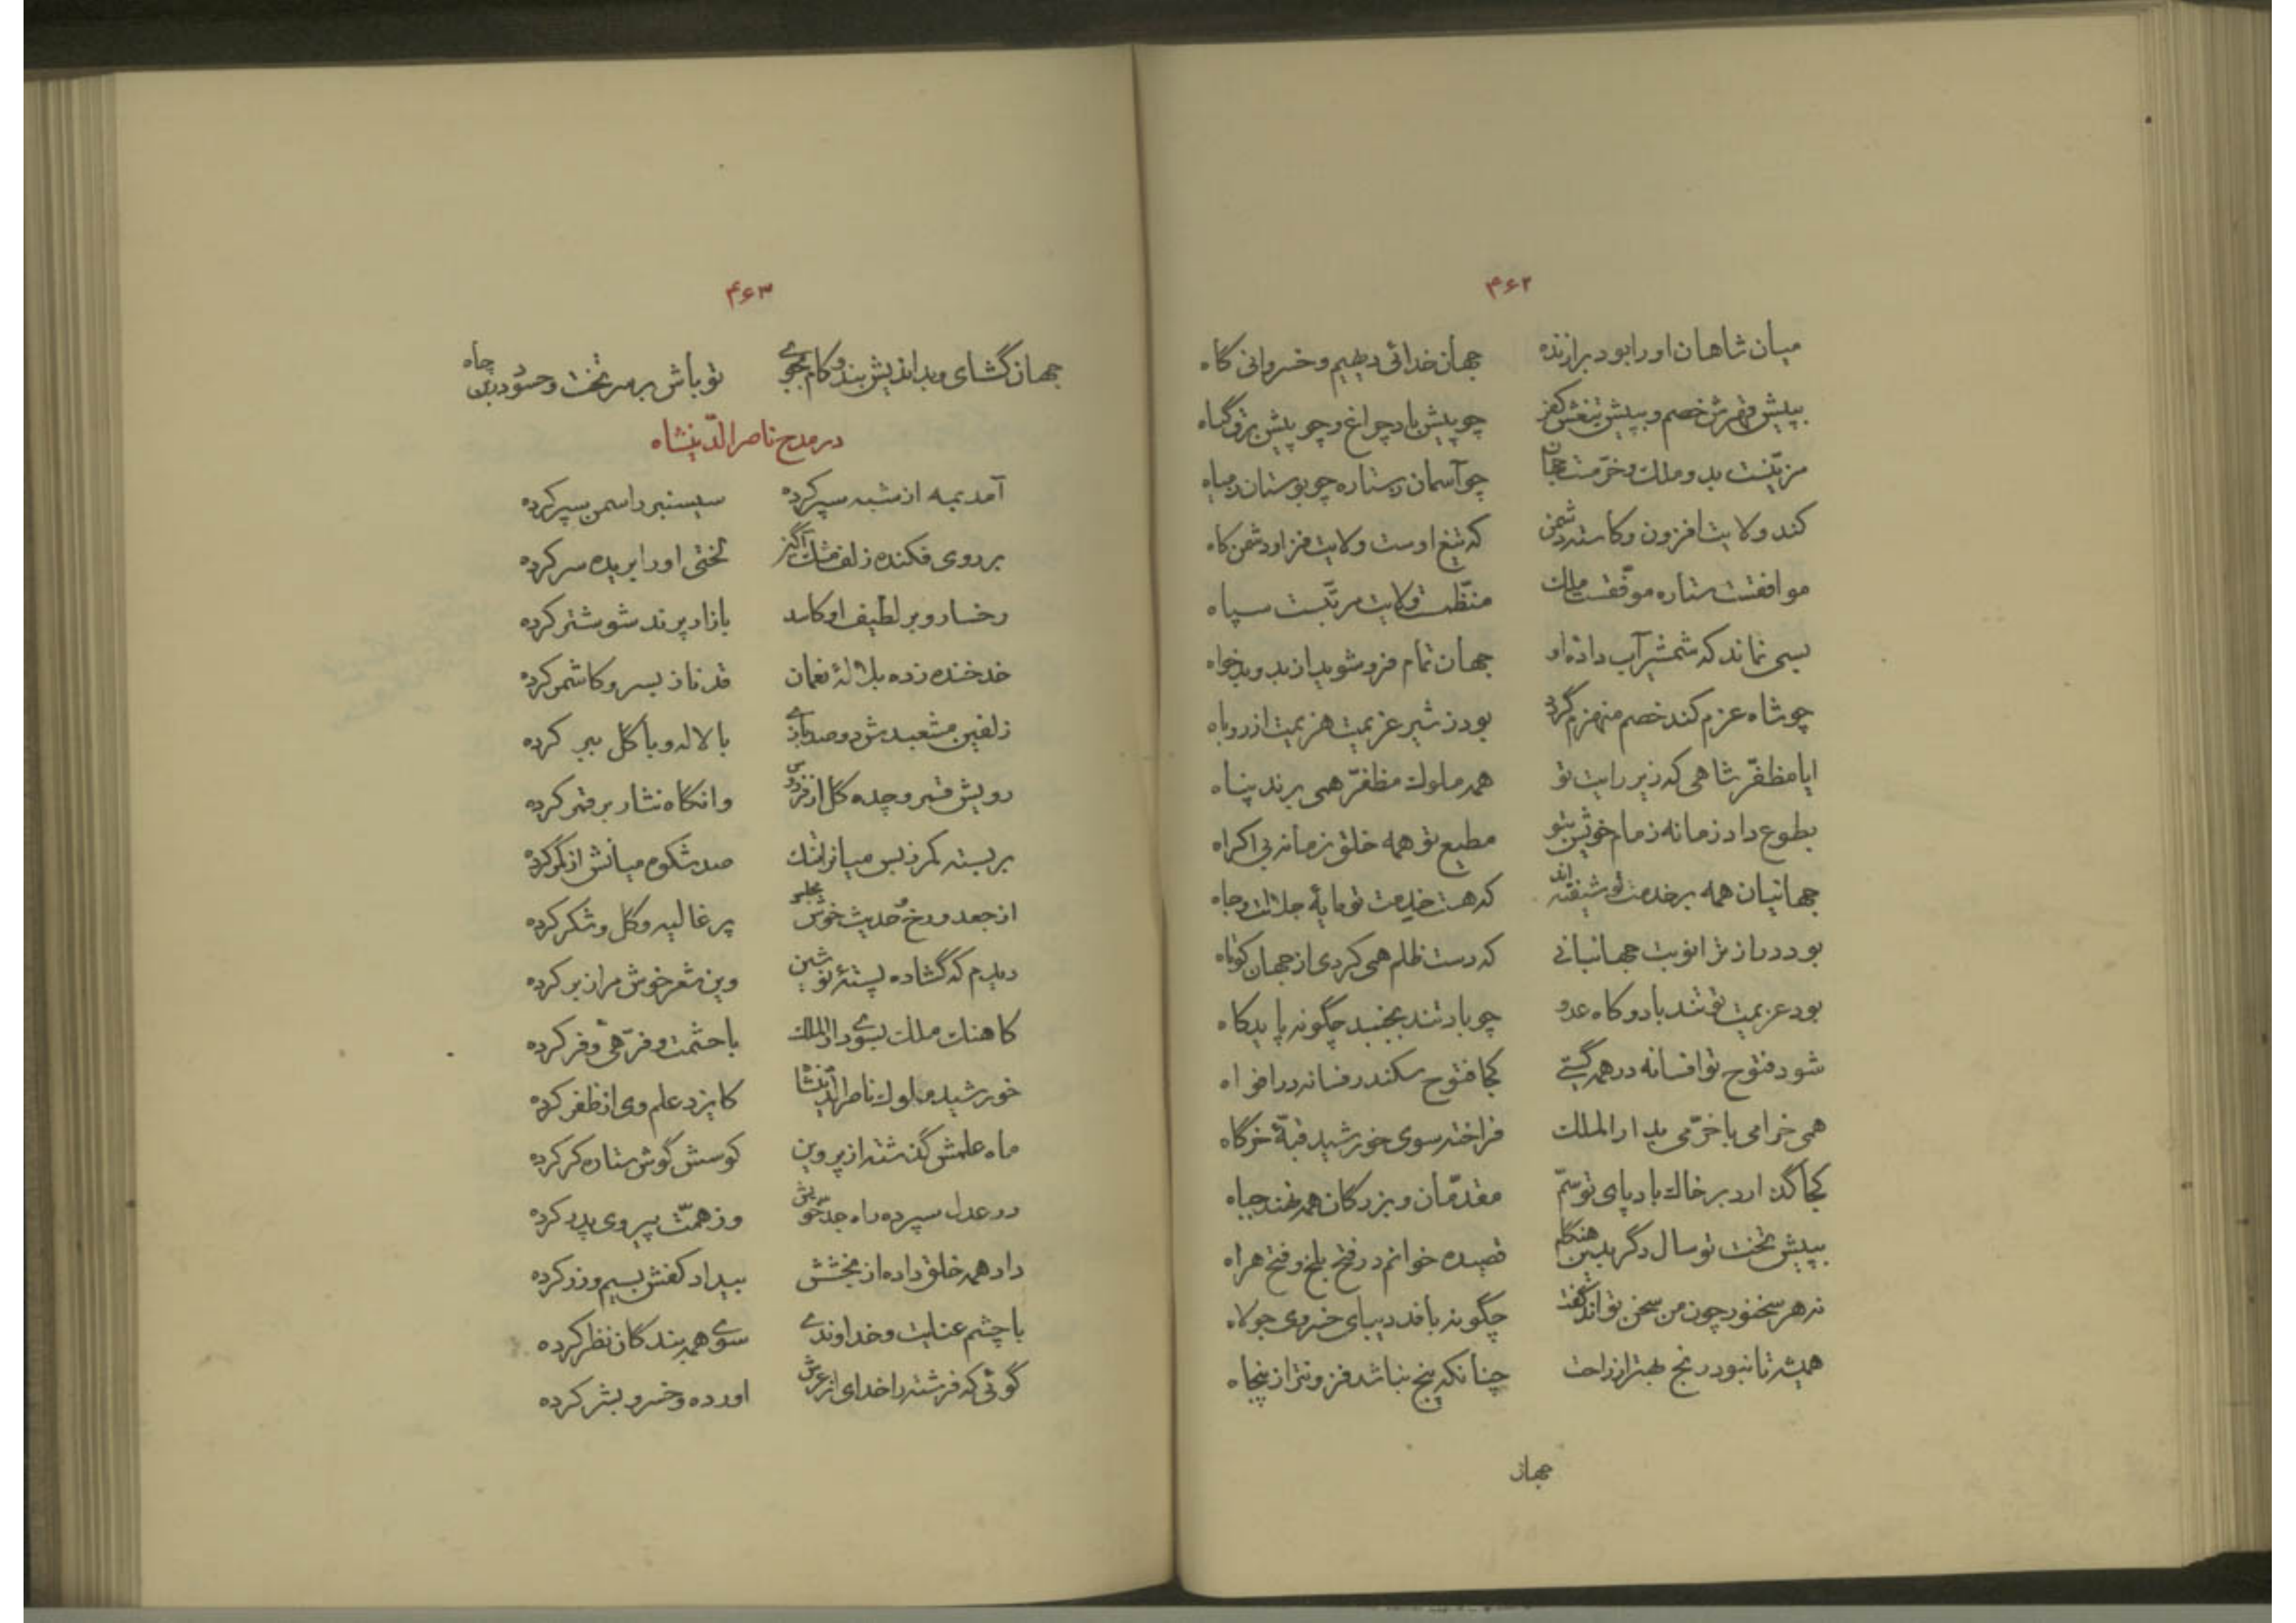 ۴۶۲
میان شاهان او را بود برازنده جهان خدائی دیهیم و خسروانی گاه
بپیش قهرش خصم و بپیش تیغش کفر چو پیش باد چراغ و چو پیش برق گیاه
مزیّنست بدو ملک و خرّمست جهان چو آسمان بستاره چو بوستان بمیاه
کند ولایت افزون و کاسته دشمن که تیغ اوست ولایت فزا و دشمن کاه
موافقست ستاره موفّقست ملک منظّمست ولایت مرتّبست سپاه
بسی نماند که شمشیر آب داده او جهان تمام فرو شوید از بد و بدخواه
چو شاه عزم کند خصم منهزم گردد بود ز شیر عزیمت هزیمت از روباه
ایا مظفّر شاهی که زیر رایت تو همه ملوک مظفّر همی برند پناه
بطوع داد زمانه زمام خویش بتو مطیع تو همه خلق زمانه بی اکراه
جهانیان همه بر خدمت تو شیفته‌اند که هست خدمت تو مایهٔ جلالت و جاه
بود دراز ترا نوبت جهانبانی که دست ظلم همی کردی از جهان کوتاه
بود عزیمت تو تند باد و کاه عدو چو باد تند بجنبد چگونه پاید کاه
شود فتوح تو افسانه در همه گیتی کجا فتوح سکندر فسانه در افواه
همی خرامی با خرّمی بدار الملک فراخته سوی خورشید قبّهٔ خرگاه
کجا گذارد بر خاک بادپای تو سمّ مقدّمان و بزرگان همه نهند جباه
بپیش تخت تو سال دگر بدین هنگام قصیده خوانم در فتح بلخ و فتح هراه
نه هر سخنور چون من سخن تواند گفت چگونه بافد دیبای خسروی جولاه
همیشه تا نبود رنج بهتر از راحت چنانکه پنج نباشد فزونتر از پنجاه
جهان
۴۶۳
جهان گشای و بداندیش بند و کام بجوی تو باش بر سر تخت و حسود در بن چاه
در مدح ناصر الدّینشاه
آمد بمه از شبه سپر کرده سیسنبر را سمن سپر کرده
بر روی فکنده زلف مشک آگیز لختی او را بریده سر کرده
رخسار و بر لطیف او کاسد بازار پرند شوشتر کرده
خد خنده زده بلالهٔ نعمان قد ناز بسرو کاشمر کرده
زلفین مشعبدش دو صد بازی با لاله و با گل ببر کرده
رویش قمر و چده گل از فردوس وانگاه نثار بر قمر کرده
بر بسته کمر ز بس میان تنگ صد شکوه میانش از کمر کرده
از جعد و رخ و حدیث خوش مجلس پر غالیه و گل و شکر کرده
دیدم که گشاده پستهٔ نوشین وین شعر خوش مرا ز بر کرده
کاهنک ملک بسوی دار الملک با حشمت و فرّهی و فر کرده
خورشید ملوک ناصر الدّینشاه کایزد علم وی از ظفر کرده
ماه علمش گذشته از پروین کوسش گوش ستاره کر کرده
در عدل سپرده راه جدّ خویش وز همّت پیروی پدر کرده
داد همه خلق داده از بخشش بیداد کفش بسیم و زر کرده
با چشم عنایت و خداوندی سوی همه بندگان نظر کرده
گوئی که فرشته را خدای از عرش اورده و خسرو بشر کرده